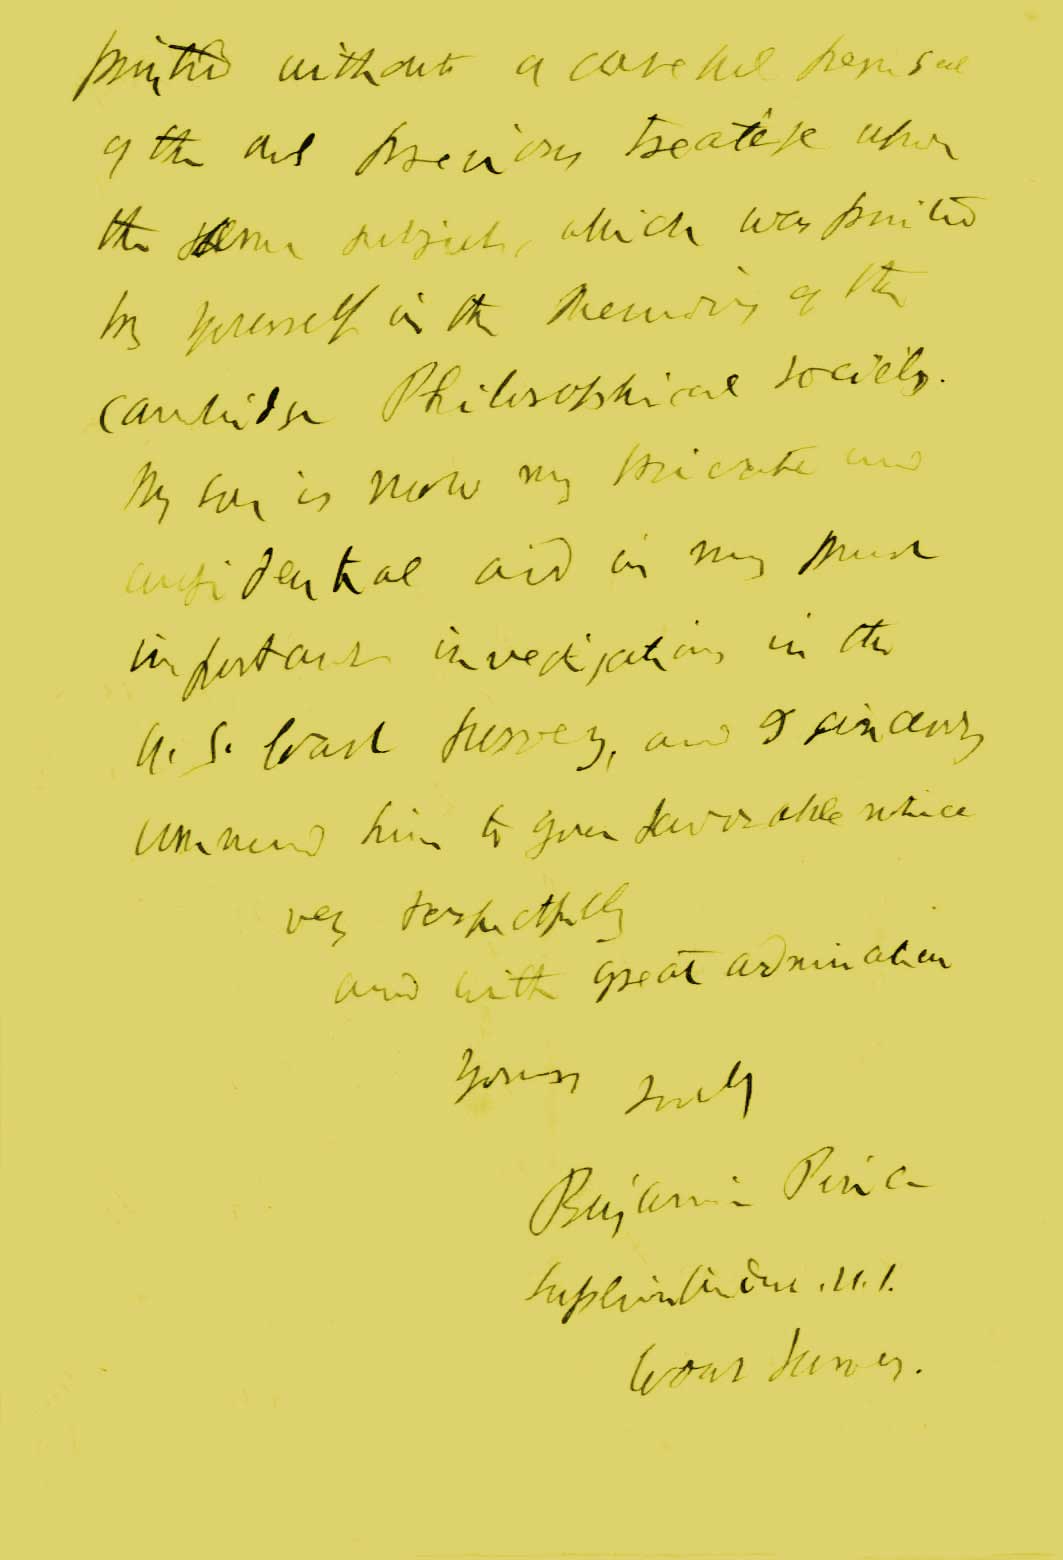 printed without a careful perusal
of the previous treatise upon
the same subject, which was printed
by yourself in the Memoirs of the
Cambridge Philosophical Society.
My son is now my private and
confidential aid in my most
important investigations in the
U. S. Coast Survey, and I sincerely
commend him to your favorable notice
very respectfully
and with great admiration
Yours truly
Benjamin Peirce
Superintendent U. S.
Coast Survey.